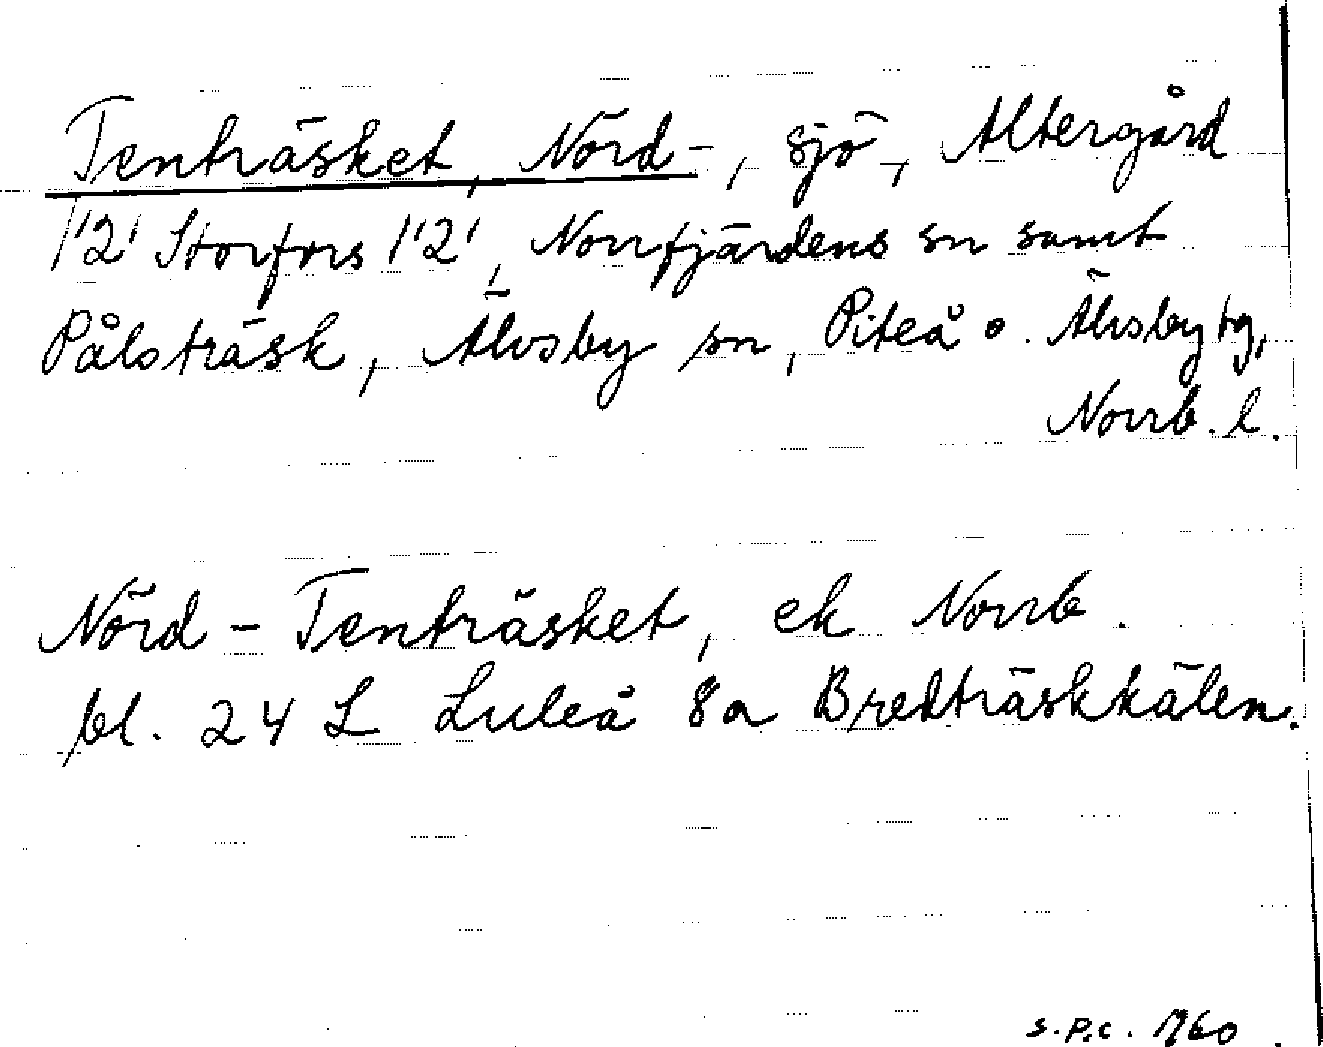 Tenträsket, Nörd-, sjö, Altergård
/'2' Storfors /'2', Norrfjärdens sn samt
Pålsträsk, Älvsby sn, Piteå o. Älvsby tg,
Norrb. l.
Nörd-Tenträsket, ek Norrb.
bl. 24 L Luleå 8a Bredträskkälen.
s.p.c. 1960.